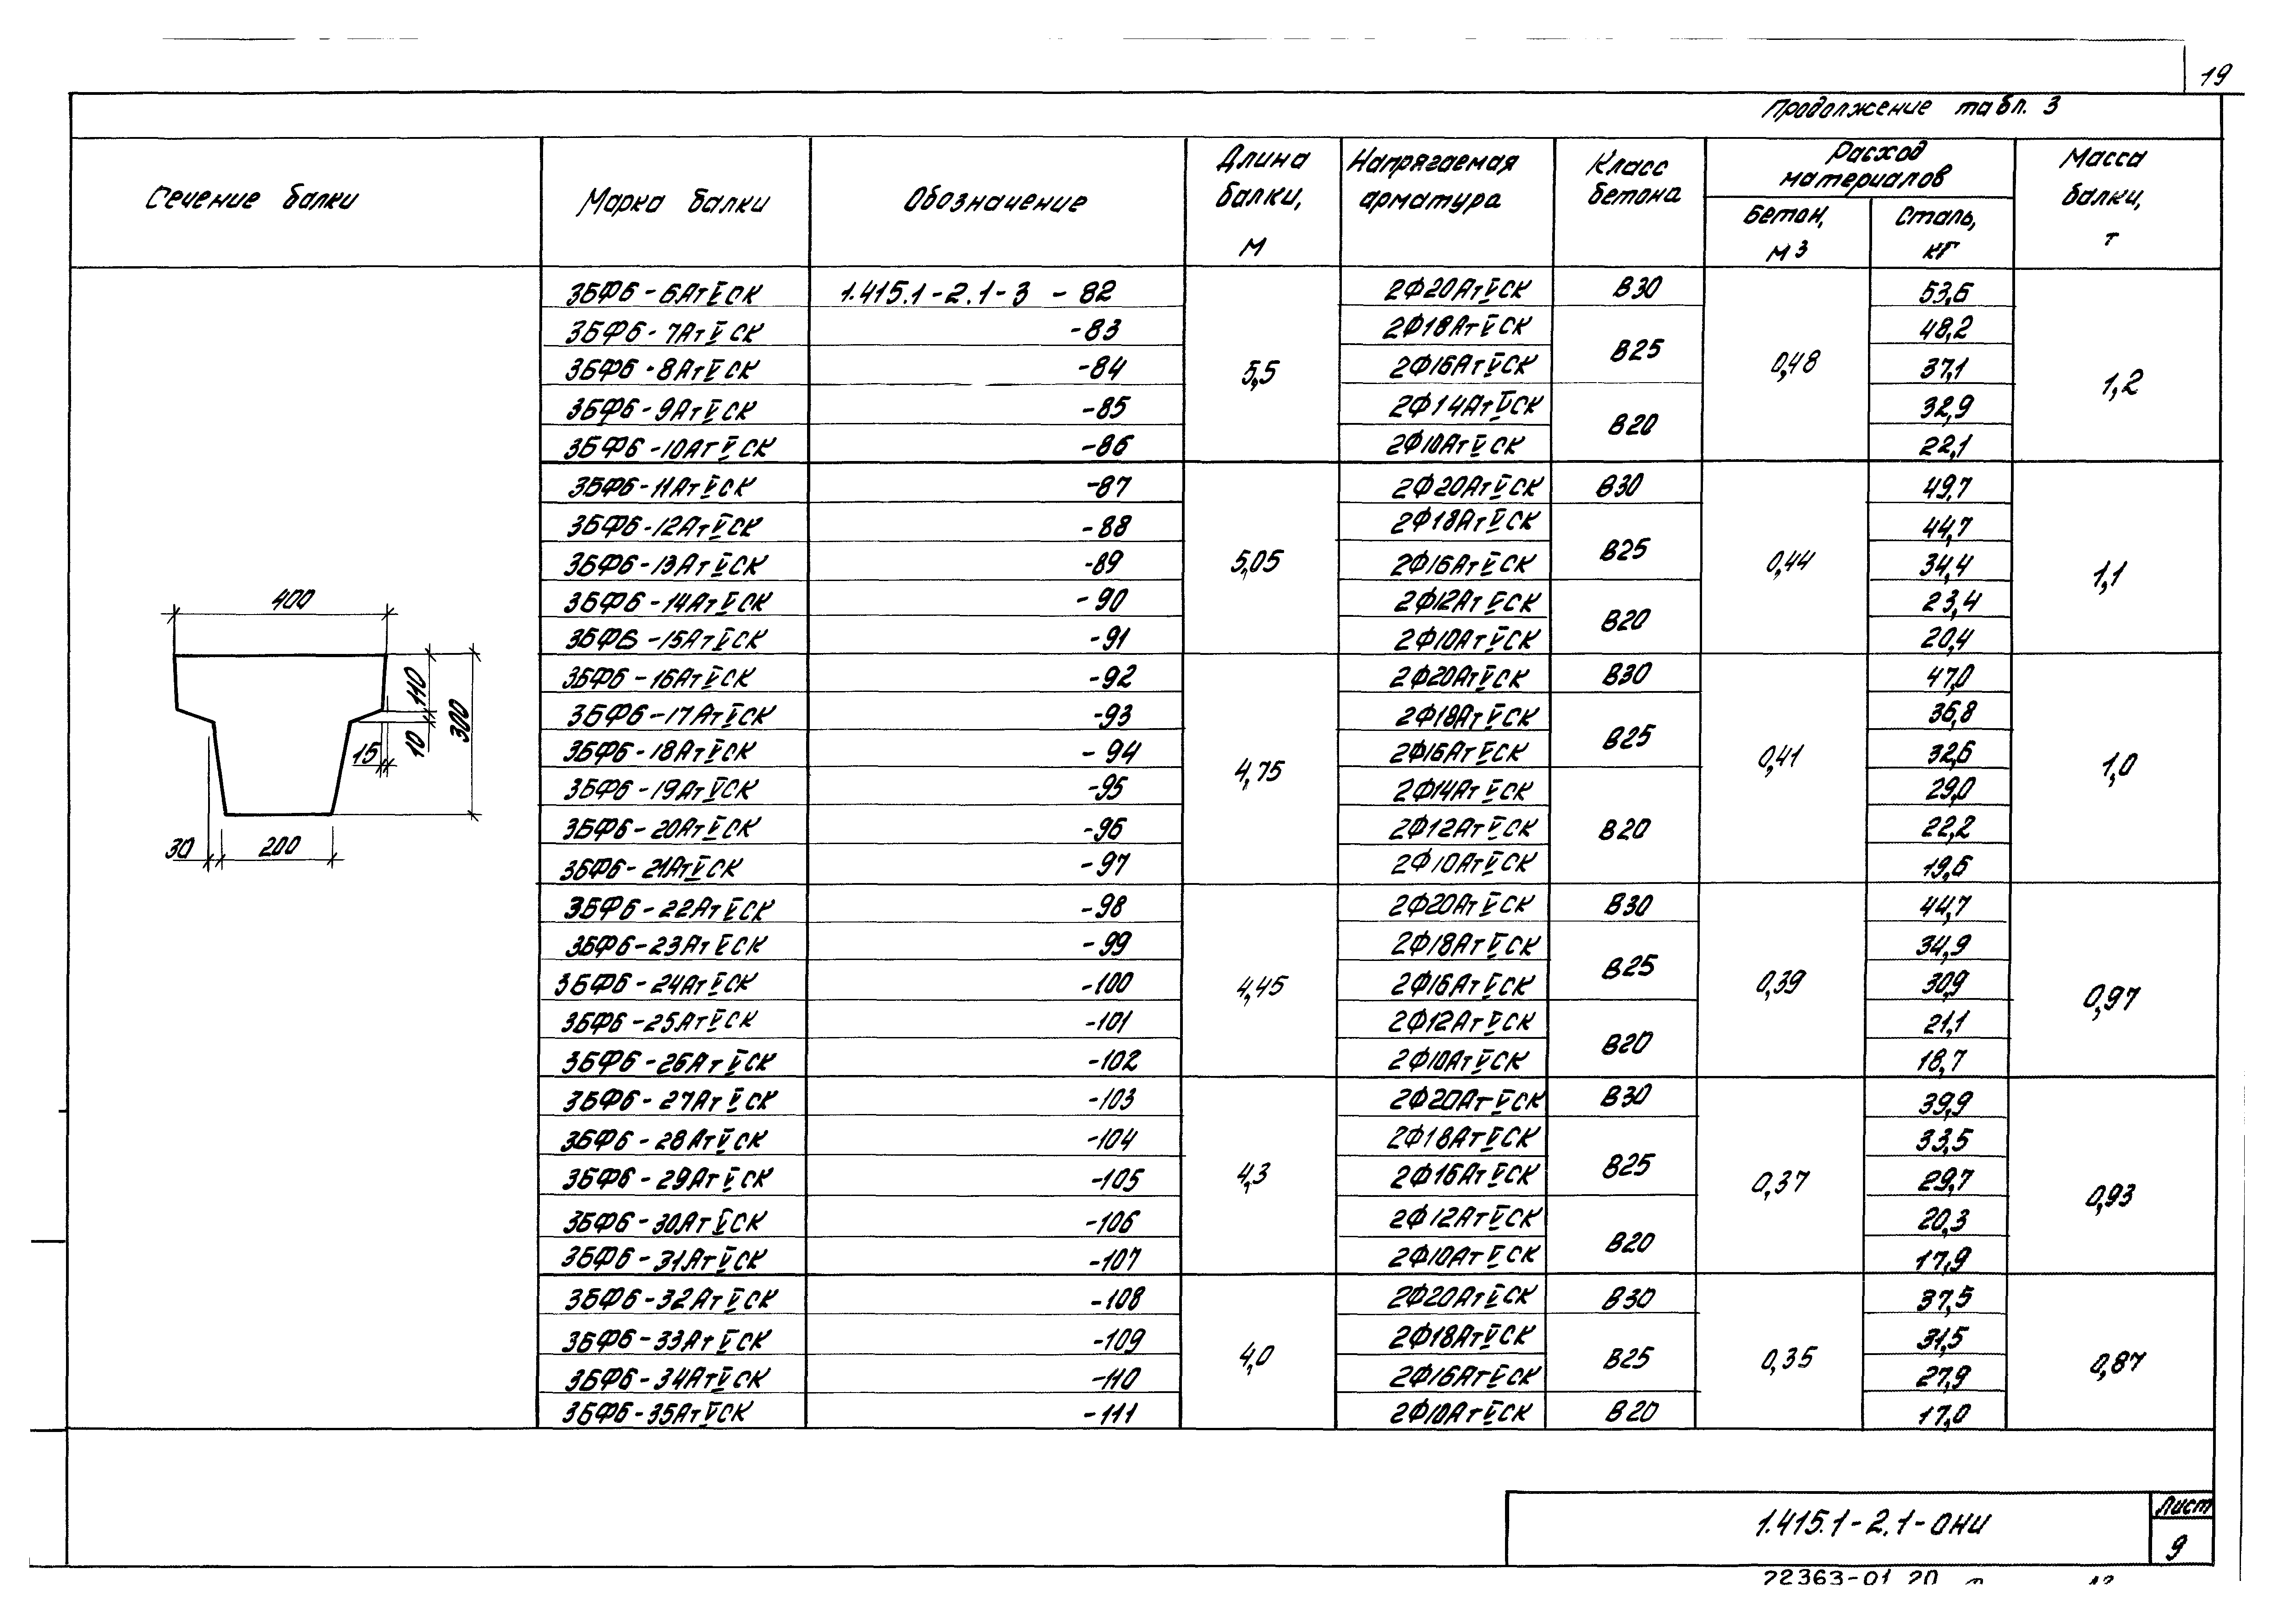 19
Продолжение табл. 3
Сечение балки	Марка балки	Обозначение	Длина балки, м	Напрягаемая арматура	Класс бетона	Расход материалов	Масса балки, т
Бетон, м3	Сталь, кг
3БФ6-6АтVСК	1.415.1-2.1-3 -82	5,5	2Ф20АтVСК	В30	0,48	53,6	1,2
3БФ6-7АтVСК	-83	2Ф18АтVСК	В25	48,2
3БФ6-8АтVСК	-84	2Ф16АтVСК	37,1
3БФ6-9АтVСК	-85	2Ф14АтVСК	В20	32,9
3БФ6-10АтVСК	-86	2Ф10АтVСК	22,1
3БФ6-11АтVСК	-87	5,05	2Ф20АтVСК	В30	0,44	49,7	1,1
3БФ6-12АтVСК	-88	2Ф18АтVСК	В25	44,7
3БФ6-13АтVСК	-89	2Ф16АтVСК	34,4
3БФ6-14АтVСК	-90	2Ф12АтVСК	В20	23,4
3БФ6-15АтVСК	-91	2Ф10АтVСК	20,4
3БФ6-16АтVСК	-92	4,75	2Ф20АтVСК	В30	0,41	47,0	1,0
3БФ6-17АтVСК	-93	2Ф18АтVСК	В25	36,8
3БФ6-18АтVСК	-94	2Ф16АтVСК	32,6
3БФ6-19АтVСК	-95	2Ф14АтVСК	В20	29,0
3БФ6-20АтVСК	-96	2Ф12АтVСК	22,2
3БФ6-21АтVСК	-97	2Ф10АтVСК	19,6
3БФ6-22АтVСК	-98	4,45	2Ф20АтVСК	В30	0,39	44,7	0,97
3БФ6-23АтVСК	-99	2Ф18АтVСК	В25	34,9
3БФ6-24АтVСК	-100	2Ф16АтVСК	30,9
3БФ6-25АтVСК	-101	2Ф12АтVСК	В20	21,1
3БФ6-26АтVСК	-102	2Ф10АтVСК	18,7
3БФ6-27АтVСК	-103	4,3	2Ф20АтVСК	В30	0,37	39,9	0,93
3БФ6-28АтVСК	-104	2Ф18АтVСК	В25	33,5
3БФ6-29АтVСК	-105	2Ф16АтVСК	29,7
3БФ6-30АтVСК	-106	2Ф12АтVСК	В20	20,3
3БФ6-31АтVСК	-107	2Ф10АтVСК	17,9
3БФ6-32АтVСК	-108	4,0	2Ф20АтVСК	В30	0,35	37,5	0,87
3БФ6-33АтVСК	-109	2Ф18АтVСК	В25	31,5
3БФ6-34АтVСК	-110	2Ф16АтVСК	27,9
3БФ6-35АтVСК	-111	2Ф10АтVСК	В20	17,0
400
110
300
15
10
30
200
1.415.1-2.1-ОНИ
Лист
9
22363-01 20